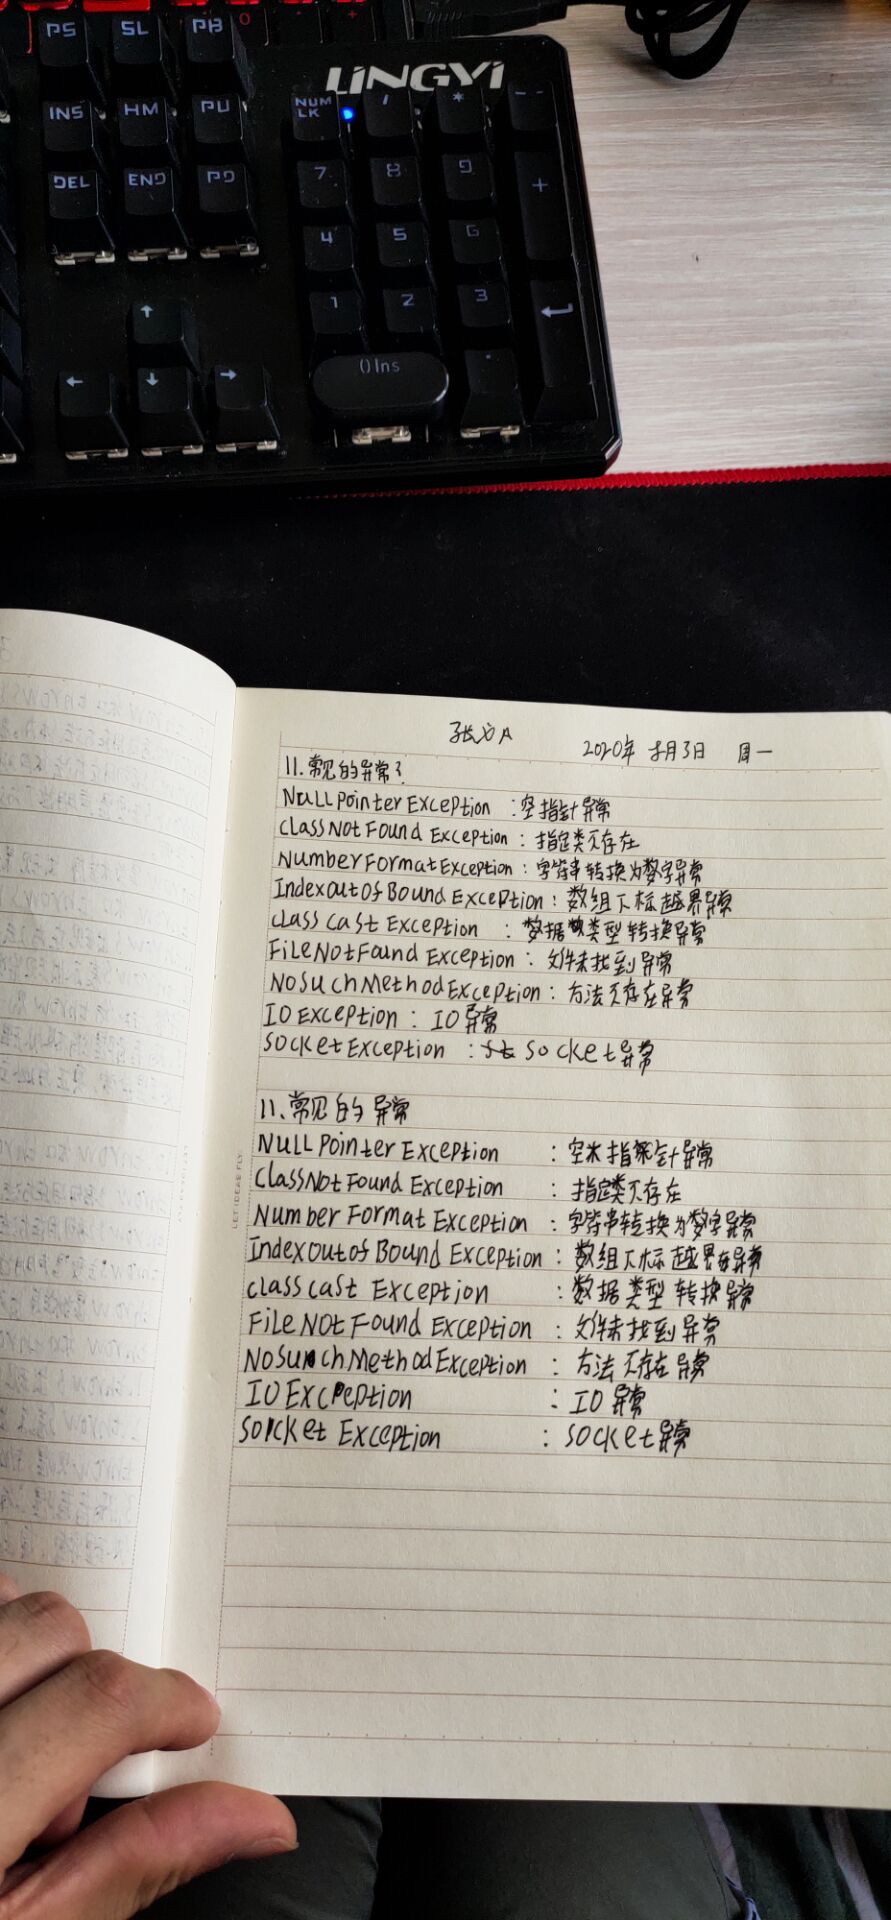 PS SL PB
LINGYI
INS HM PU NUM LK / * -
DEL END PD 7 8 9 +
4 5 6
↑ 1 2 3
← ↓ → 0Ins .
2020年 8月3日 周一
11.常见的异常?
NullPointerException :空指针异常
ClassNotFoundException :指定类不存在
NumberFormatException :字符串转换为数字异常
IndexoutofBoundException :数组下标越界异常
ClassCastException :数据类型转换异常
FileNotFoundException :文件未找到异常
NoSuchMethodException :方法不存在异常
IOException :IO异常
SocketException :Socket异常
11.常见的异常
NullPointerException :空指针异常
ClassNotFoundException :指定类不存在
NumberFormatException :字符串转换为数字异常
IndexoutofBoundException :数组下标越界异常
classcastException :数据类型转换异常
FileNotFoundException :文件未找到异常
NoSuchMethodException :方法不存在异常
IOException :IO异常
SocketException :Socket异常
LET IDEAS FLY